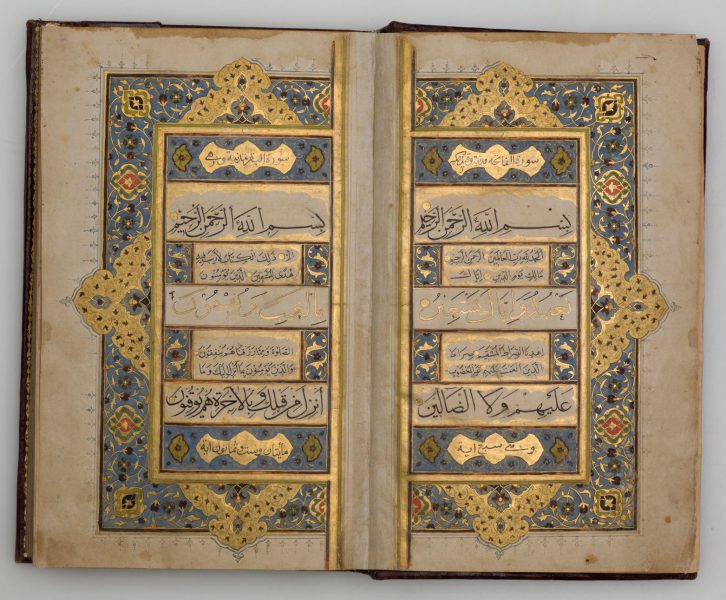 سورة الفاتحة
بسم الله الرحمن الرحيم
الحمد لله رب العالمين الرحمن الرحيم
مالك يوم الدين اياك
نعبد واياك نستعين
اهدنا الصراط المستقيم صراط
الذين انعمت عليهم غير المغضوب
عليهم ولا الضالين
وهي سبع اية
سورة البقرة مدنية وهي
بسم الله الرحمن الرحيم
الم ذلك الكتاب لا ريب فيه
هدى للمتقين الذين يؤمنون
بالغيب ويقيمون
الصلوة ومما رزقناهم ينفقون
والذين يؤمنون بما انزل اليك وما
انزل من قبلك وبالاخرة هم يوقنون
مايتان وست وثمانون اية